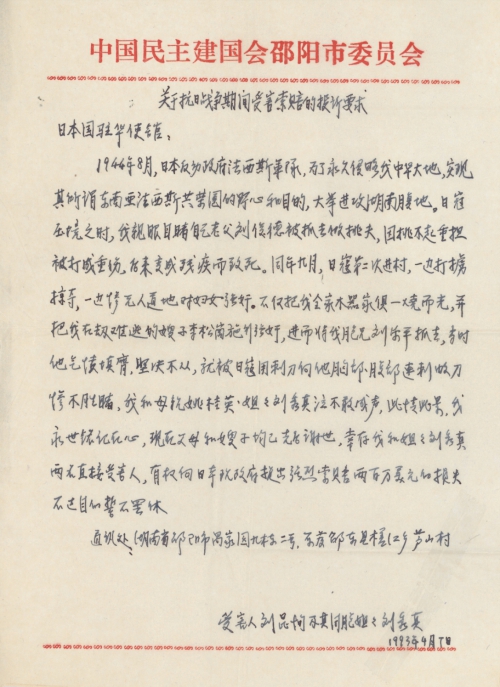 中国民主建国会邵阳市委员会
关于抗日战争期间受害索赔的投诉要求
日本国驻华使馆：
1944年8月，日本反动政府法西斯军队，为了永久侵略我中华大地，实现
其所谓东南亚法西斯共荣圈的野心和目的，大举进攻湖南腹地。日寇
压境之时，我亲眼目睹自己老父刘俊德被抓去做挑夫，因挑不起重担
被打成重伤，后来变成残疾而致死。同年九月，日寇第二次进村，一边打掳
掠夺，一边惨无人道地对妇女强奸。不仅把我全家木器家俱一烧而光，并
把我在赦难逃的嫂子李松菊施行强奸，进而将我胞兄刘乐平抓去，当时
他气愤填膺，坚决不从，就被日寇用利刀向他胸部腹部连刺数刀
惨不忍睹，我和母亲姚桂英、姐姐刘秀真泣不敢成声，此情此景，我
永世铭记在心，现在父母和嫂子均已先后谢世，幸存我和姐姐刘秀真
两个直接受害人，有权向日本政府提出强烈索赔两百万美元的损失
不达目的誓不罢休
通讯处：湖南省邵阳市冯家园九栋二号，
受害人刘品恂 及其同胞姐姐刘秀真
1993年4月7日